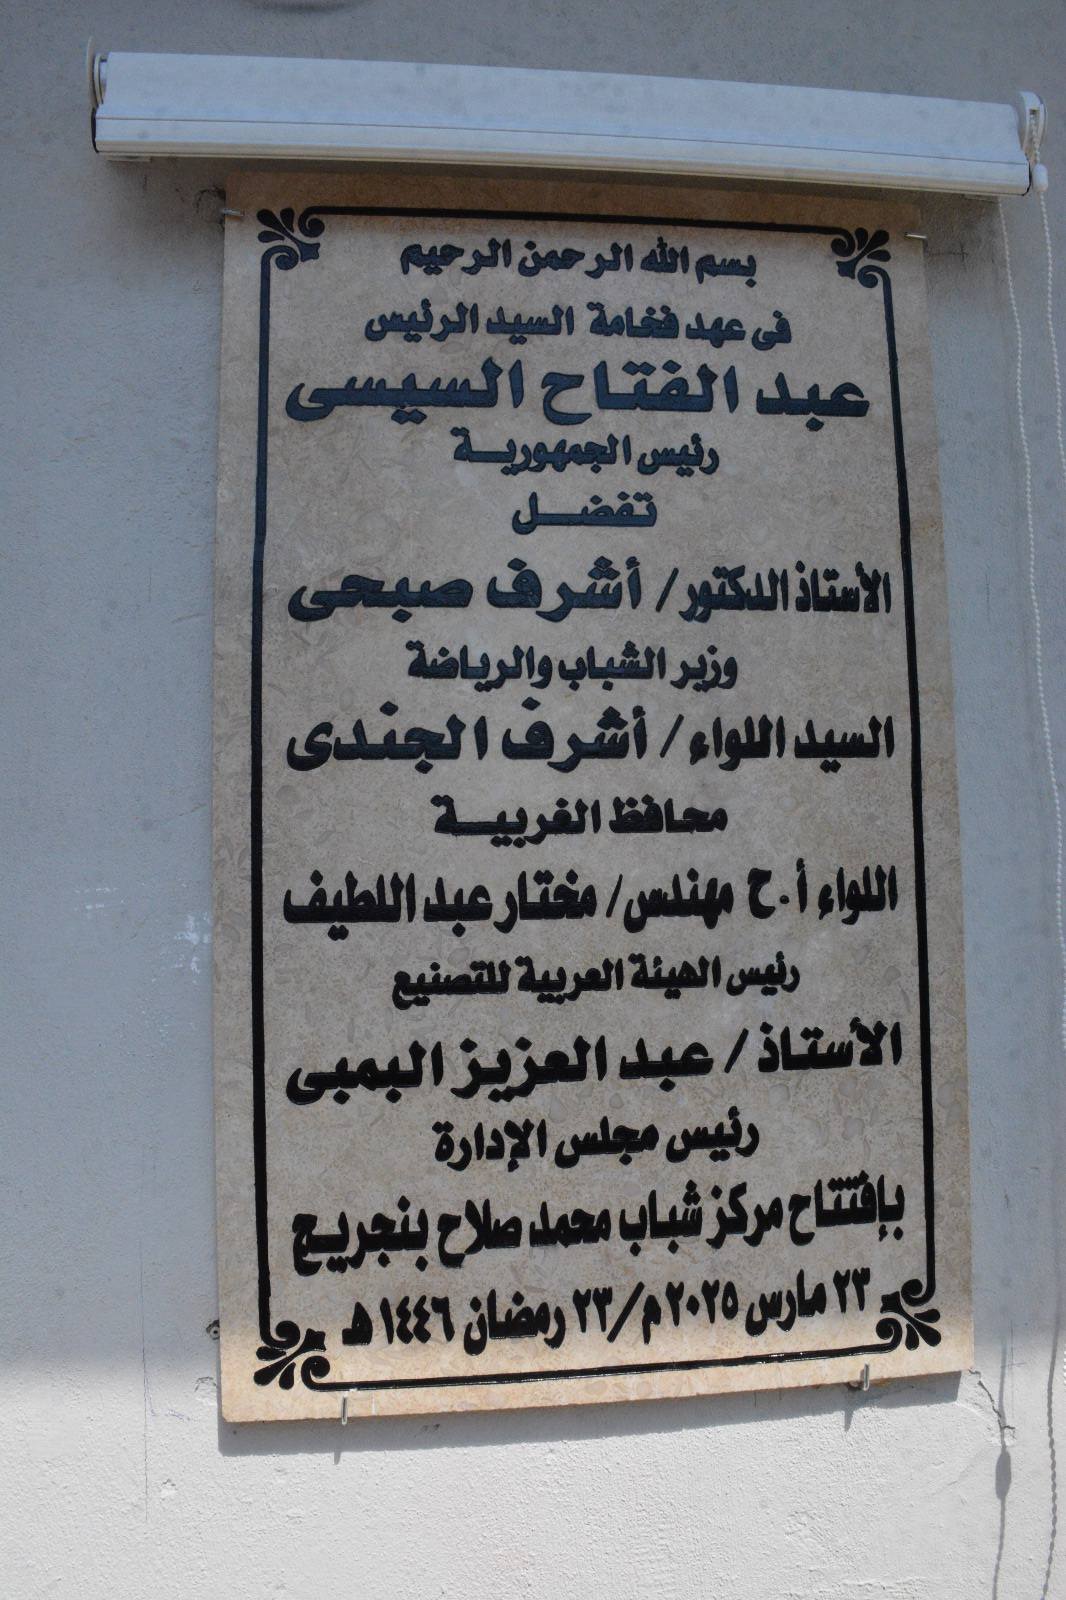 بسم الله الرحمن الرحيم
فى عهد فخامة السيد الرئيس
عبد الفتاح السيسى
رئيس الجمهورية
تفضل
الأستاذ الدكتور / أشرف صبحى
وزير الشباب والرياضة
السيد اللواء / أشرف الجندى
محافظ الغربية
اللواء أ.ح مهندس / مختار عبد اللطيف
رئيس الهيئة العربية للتصنيع
الأستاذ / عبد العزيز البمبى
رئيس مجلس الإدارة
بإفتتاح مركز شباب محمد صلاح بنجريج
٢٣ مارس ٢٠٢٥ م / ٢٣ رمضان ١٤٤٦ هـ